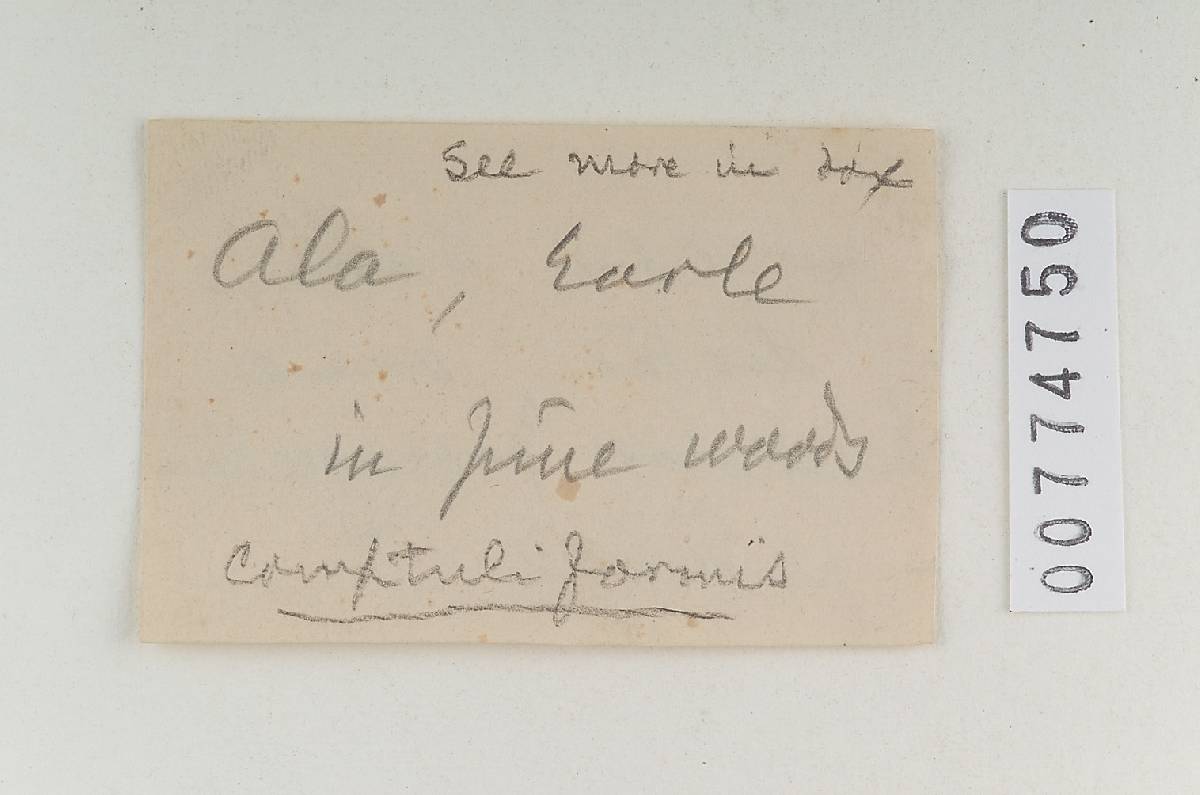 See more in box
Ala, Earle
in pine woods
Comptuliformis
00774750